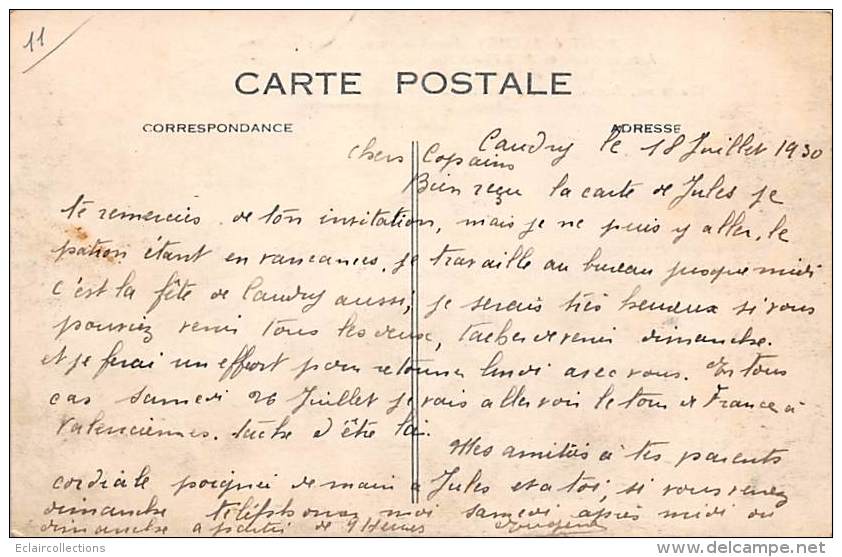 11
CARTE POSTALE
CORRESPONDANCE
ADRESSE
Caudry le 18 Juillet 1930
Chers Copains
Bien reçu la carte de Jules je
te remercies de ton invitation, mais je ne puis y aller, le
patron étant en vancances, je travaille au bureau jusque midi
c'est la fête de Caudry aussi, je serais très heureux si vous
pouviez venir tous les deux, tacher de venir dimanche.
et je ferai un effort pour retourner lundi avec vous. En tous
cas samedi 26 Juillet je vais aller voir le tour de France à
Valenciennes. tâche d'être là.
Mes amitiés à tes parents
cordiale poignée de main à Jules et a toi, si vous venez
dimanche téléphonez moi samedi après midi ou
dimanche a partir de 9 Heures
Eclaircollections
delcampe.net